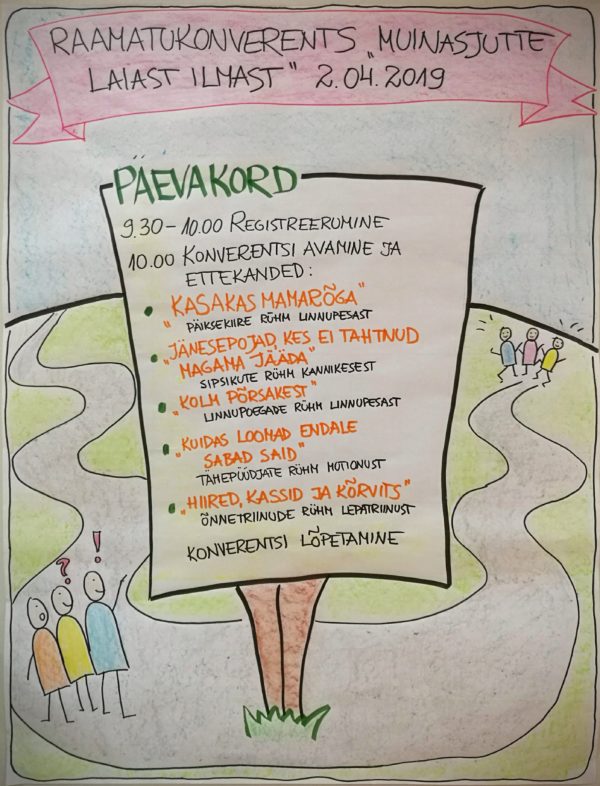 RAAMATUKONVERENTS „MUINASJUTTE
LAIAST ILMAST" 2.04.2019
PÄEVAKORD
9.30-10.00 REGISTREERUMINE
10.00 KONVERENTSI AVAMINE JA
ETTEKANDED:
• „KASAKAS MAMARÕGA"
PÄIKSEKIIRE RÜHM LINNUPESAST
• „JÄNESEPOJAD, KES EI TAHTNUD
MAGAMA JÄÄDA"
SIPSIKUTE RÜHM KANNIKESEST
• „KOLM PÕRSAKEST"
LINNUPOEGADE RÜHM LINNUPESAST
• „KUIDAS LOOMAD ENDALE
SABAD SAID"
TÄHEPÜÜDJATE RÜHM MOTIONUST
• „HIIRED, KASSID JA KÕRVITS"
ÕNNETRIINUDE RÜHM LEPATRIINUST
KONVERENTSI LÕPETAMINE
? !